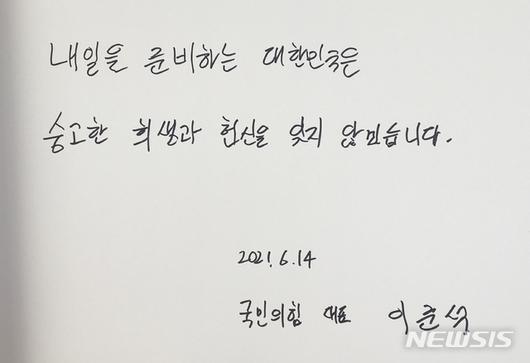 내일을 준비하는 대한민국은
숭고한 희생과 헌신을 잊지 않민습니다.
2021. 6. 14
국민의힘 대표 이준석
NEWSIS